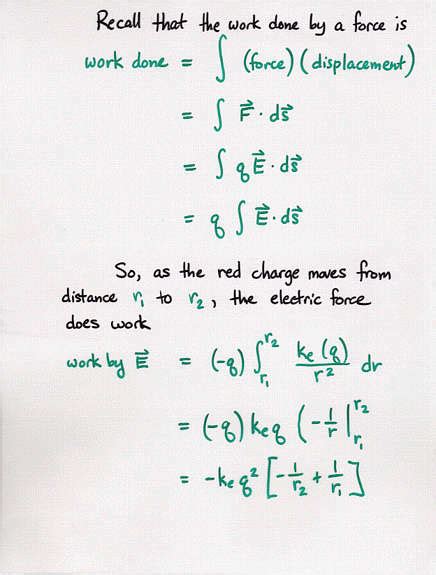 Recall that the work done by a force is
work done = ∫ (force) (displacement)
= ∫ F⃗ · ds⃗
= ∫ qE⃗ · ds⃗
= q ∫ E⃗ · ds⃗
So, as the red charge moves from
distance r₁ to r₂, the electric force
does work
work by E⃗ = (-q) ∫_{r₁}^{r₂} ke(q)/r² dr
= (-q) ke q (-1/r |_{r₁}^{r₂}
= -ke q² [-1/r₂ + 1/r₁]